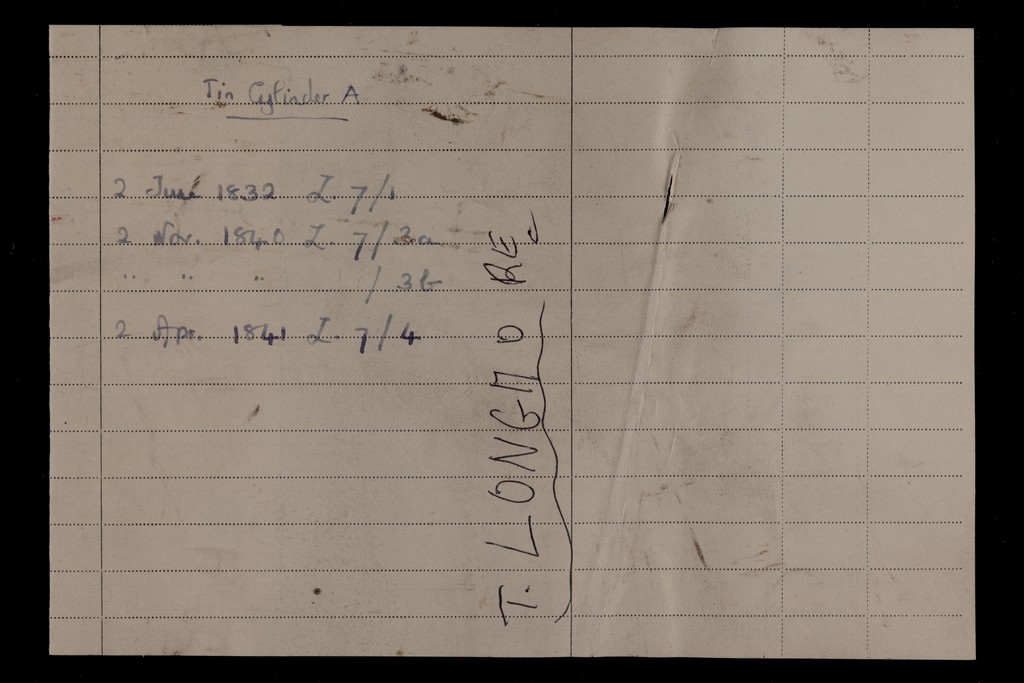 Tin Cylinder A
2 June 1832 L. 7/1
2 Nov. 1840 L. 7/3a
" " " /3b
2 Apr. 1841 L. 7/4
T. LONGMORE